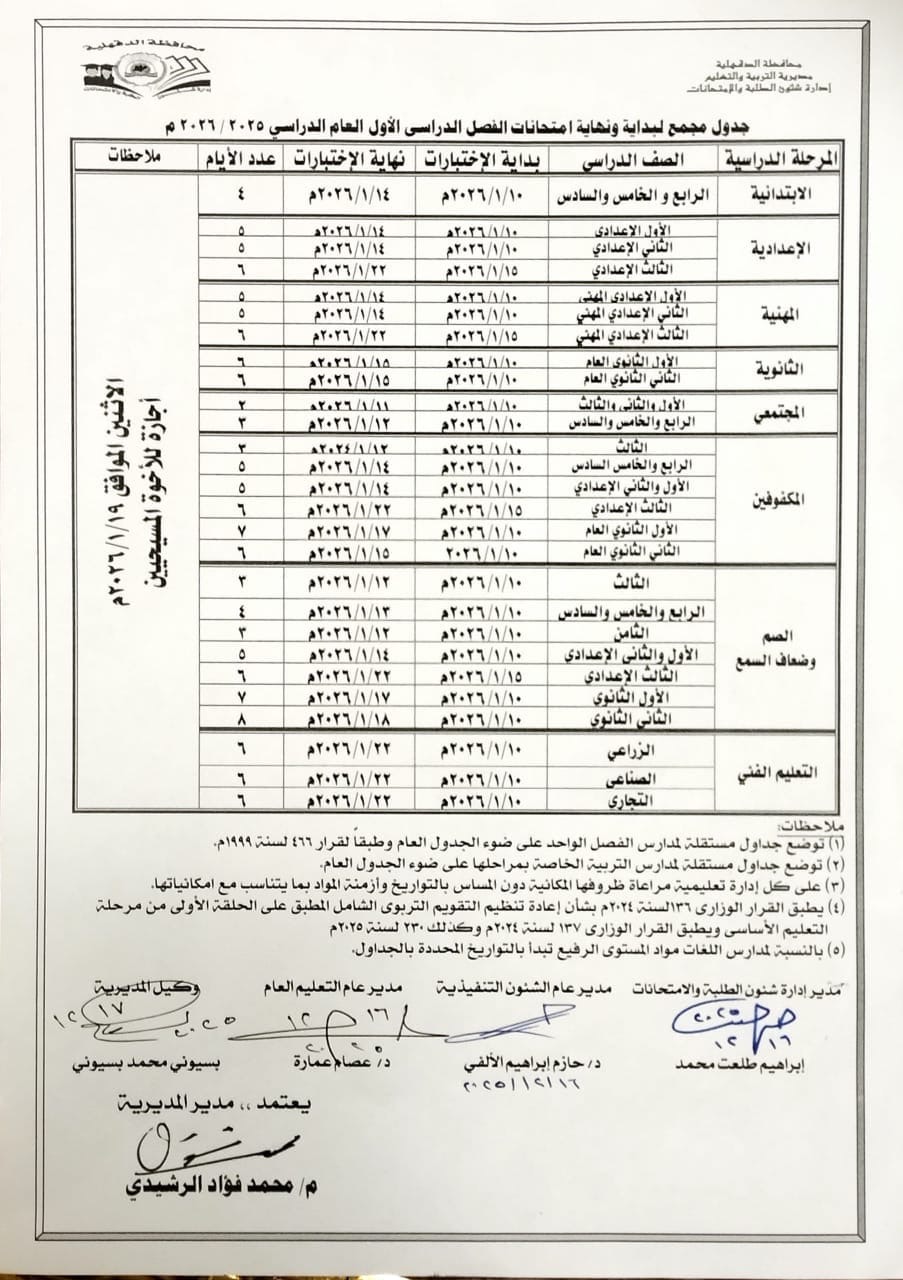 محافظة الدقهلية
محافظة الدقهلية
مديرية التربية والتعليم
إدارة شئون الطلبة والإمتحانات
جدول مجمع لبداية ونهاية امتحانات الفصل الدراسى الأول العام الدراسي ٢٠٢٥ / ٢٠٢٦ م
المرحلة الدراسية الصف الدراسي بداية الإختبارات نهاية الإختبارات عدد الأيام ملاحظات
الابتدائية الرابع و الخامس والسادس ٢٠٢٦/١/١٠م ٢٠٢٦/١/١٤م ٤
الإعدادية الأول الإعدادى ٢٠٢٦/١/١٠م ٢٠٢٦/١/١٤م ٥
الثاني الإعدادي ٢٠٢٦/١/١٠م ٢٠٢٦/١/١٤م ٥
الثالث الإعدادي ٢٠٢٦/١/١٥م ٢٠٢٦/١/٢٢م ٦
المهنية الأول الإعدادى المهنى ٢٠٢٦/١/١٠م ٢٠٢٦/١/١٤م ٥
الثاني الإعدادي المهني ٢٠٢٦/١/١٠م ٢٠٢٦/١/١٤م ٥
الثالث الإعدادي المهني ٢٠٢٦/١/١٥م ٢٠٢٦/١/٢٢م ٦
الثانوية الأول الثانوى العام ٢٠٢٦/١/١٠م ٢٠٢٦/١/١٥م ٦
الثاني الثانوي العام ٢٠٢٦/١/١٠م ٢٠٢٦/١/١٥م ٦
المجتمعي الأول والثانى والثالث ٢٠٢٦/١/١٠م ٢٠٢٦/١/١١م ٢
الرابع والخامس والسادس ٢٠٢٦/١/١٠م ٢٠٢٦/١/١٢م ٣
المكفوفين الثالث ٢٠٢٦/١/١٠م ٢٠٢٦/١/١٢م ٣
الرابع والخامس السادس ٢٠٢٦/١/١٠م ٢٠٢٦/١/١٤م ٥
الأول والثاني الإعدادي ٢٠٢٦/١/١٠م ٢٠٢٦/١/١٤م ٥
الثالث الإعدادي ٢٠٢٦/١/١٥م ٢٠٢٦/١/٢٢م ٦
الأول الثانوي العام ٢٠٢٦/١/١٠م ٢٠٢٦/١/١٧م ٧
الثاني الثانوي العام ٢٠٢٦/١/١٠ ٢٠٢٦/١/١٥م ٦
الصم
وضعاف السمع
الثالث ٢٠٢٦/١/١٠م ٢٠٢٦/١/١٢م ٣
الرابع والخامس والسادس ٢٠٢٦/١/١٠م ٢٠٢٦/١/١٣م ٤
الثامن ٢٠٢٦/١/١٠م ٢٠٢٦/١/١٢م ٣
الأول والثانى الإعدادي ٢٠٢٦/١/١٠م ٢٠٢٦/١/١٤م ٥
الثالث الإعدادي ٢٠٢٦/١/١٥م ٢٠٢٦/١/٢٢م ٦
الأول الثانوي ٢٠٢٦/١/١٠م ٢٠٢٦/١/١٧م ٧
الثاني الثانوي ٢٠٢٦/١/١٠م ٢٠٢٦/١/١٨م ٨
التعليم الفني الزراعي ٢٠٢٦/١/١٠م ٢٠٢٦/١/٢٢م ٦
الصناعى ٢٠٢٦/١/١٠م ٢٠٢٦/١/٢٢م ٦
التجارى ٢٠٢٦/١/١٠م ٢٠٢٦/١/٢٢م ٦
الاثنين الموافق ٢٠٢٦/١/١٩م
أجازة للأخوة المسيحيين
ملاحظات:
(١) توضع جداول مستقلة لمدارس الفصل الواحد على ضوء الجدول العام وطبقاً لقرار ٤٦٦ لسنة ١٩٩٩م.
(٢) توضع جداول مستقلة لمدارس التربية الخاصة بمراحلها على ضوء الجدول العام.
(٣) على كل إدارة تعليمية مراعاة ظروفها المكانية دون المساس بالتواريخ وأزمنة المواد بما يتناسب مع امكانياتها.
(٤) يطبق القرار الوزارى ١٣٦لسنة ٢٠٢٤م بشأن إعادة تنظيم التقويم التربوى الشامل المطبق على الحلقة الأولى من مرحلة
التعليم الأساسى ويطبق القرار الوزارى ١٣٧ لسنة ٢٠٢٤م وكذلك ٢٣٠ لسنة ٢٠٢٥م
(٥) بالنسبة لمدارس اللغات مواد المستوى الرفيع تبدأ بالتواريخ المحددة بالجداول.
مدير إدارة شئون الطلبة والامتحانات مدير عام الشئون التنفيذية مدير عام التعليم العام وكيل المديرية
٢٠٢٥ ١٢ ١٦
١٦ ١٢ ٢٠٢٥
١٧ ١٢ ٢٠٢٥
إبراهيم طلعت محمد د/ حازم إبراهيم الألفي د/ عصام عمارة بسيوني محمد بسيوني
٢٠٢٥/١٢/١٦
يعتمد ،، مدير المديرية
م/ محمد فؤاد الرشيدي